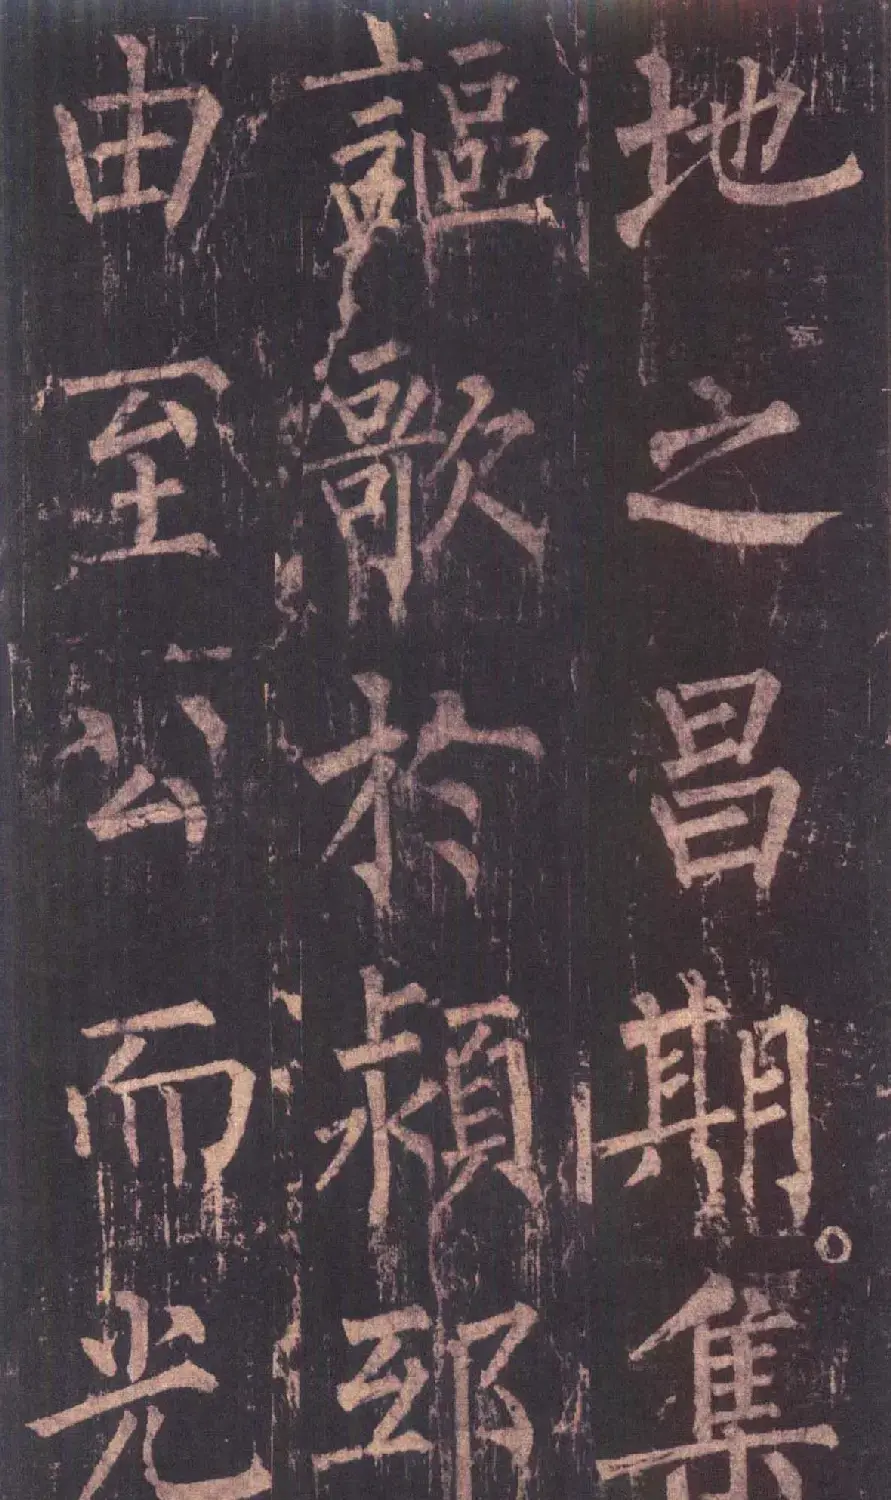 地之昌期。集
謳歌於頴邸
由至公而光